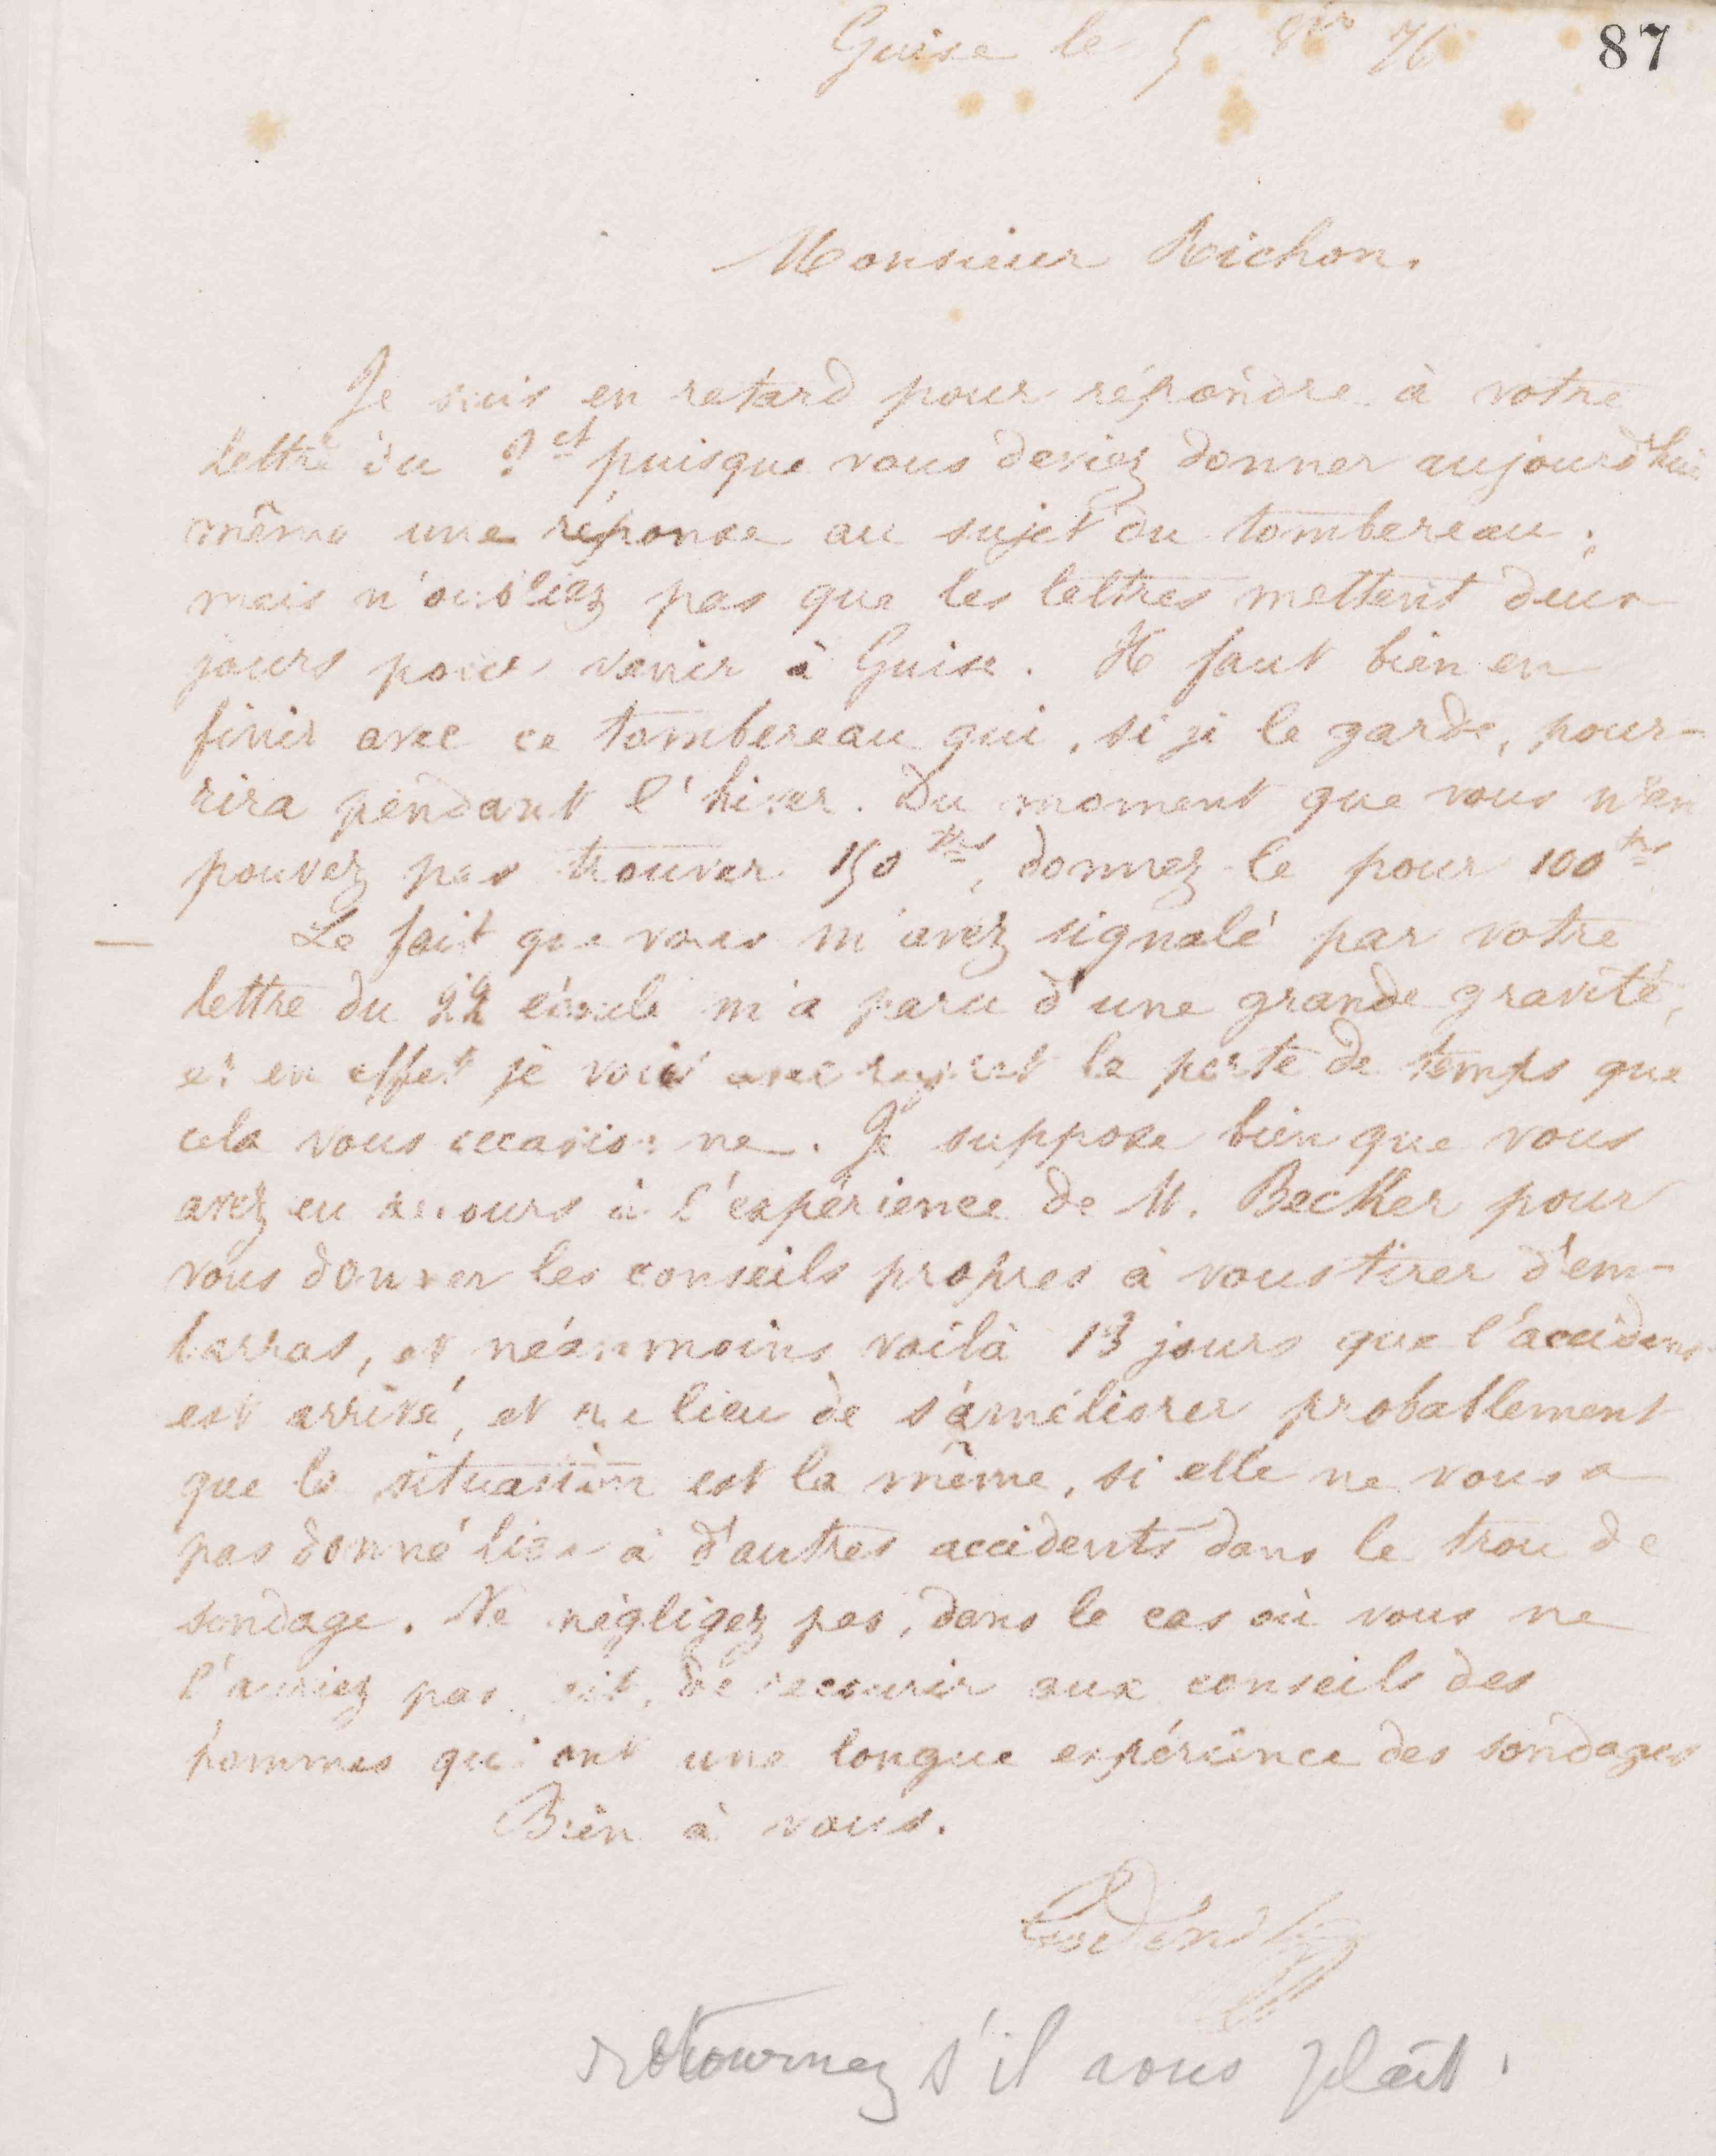 Guise le 5 8bre 76
87
Monsieur Richon.
Je suis en retard pour répondre à votre
lettre du 2 ct puisque vous deviez donner aujourd'hui
même une réponse au sujet du tombereau;
mais n'oubliez pas que les lettres mettent deux
jours pour venir à Guise. Il faut bien en
finir avec ce tombereau qui, si je le garde, pour-
rira pendant l'hiver. Du moment que vous n'en
pouvez pas trouver 150 frs, donnez-le pour 100 frs
Le fait que vous m'avez signalé par votre
lettre du 22 écoulé m'a paru d'une grande gravité,
et en effet je vois avec regret la perte de temps que
cela vous occasionne. Je suppose bien que vous
avez eu recours à l'expérience de M. Becker pour
vous donner les conseils propres à vous tirer d'em-
barras, et néanmoins voilà 13 jours que l'accident
est arrivé, et au lieu de s'améliorer probablement
que la situation est la même, si elle ne vous a
pas donné lieu à d'autres accidents dans le trou de
sondage. Ne négligez pas, dans le cas où vous ne
l'auriez pas fait, de recourir aux conseils des
hommes qui ont une longue expérience des sondages
Bien à vous.
Godin
retournez s'il vous plaît.